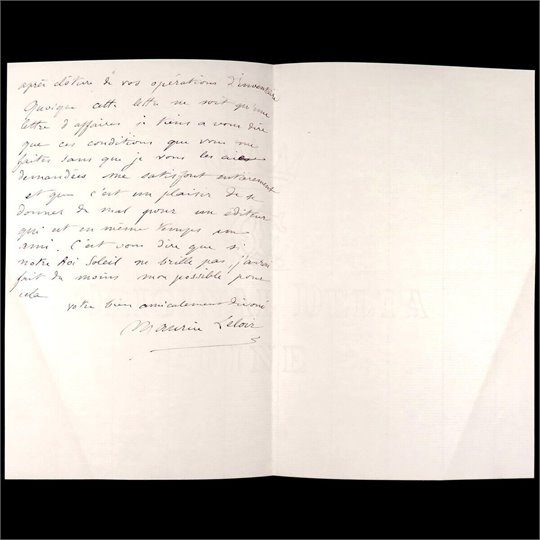 après clôture de vos opérations d'inventaire
Quoique cette lettre ne soit qu'une
lettre d'affaires je tiens a vous dire
que ces conditions que vous me
faites sans que je vous les aie
demandées me satisfont entièrement
et que c'est un plaisir de se
donner du mal pour un éditeur
qui est en même temps un
ami. C'est vous dire que si
notre Roi Soleil ne brille pas, j'aurai
fait du moins mon possible pour
cela
votre bien amicalement dévoué
Maurice Leloir